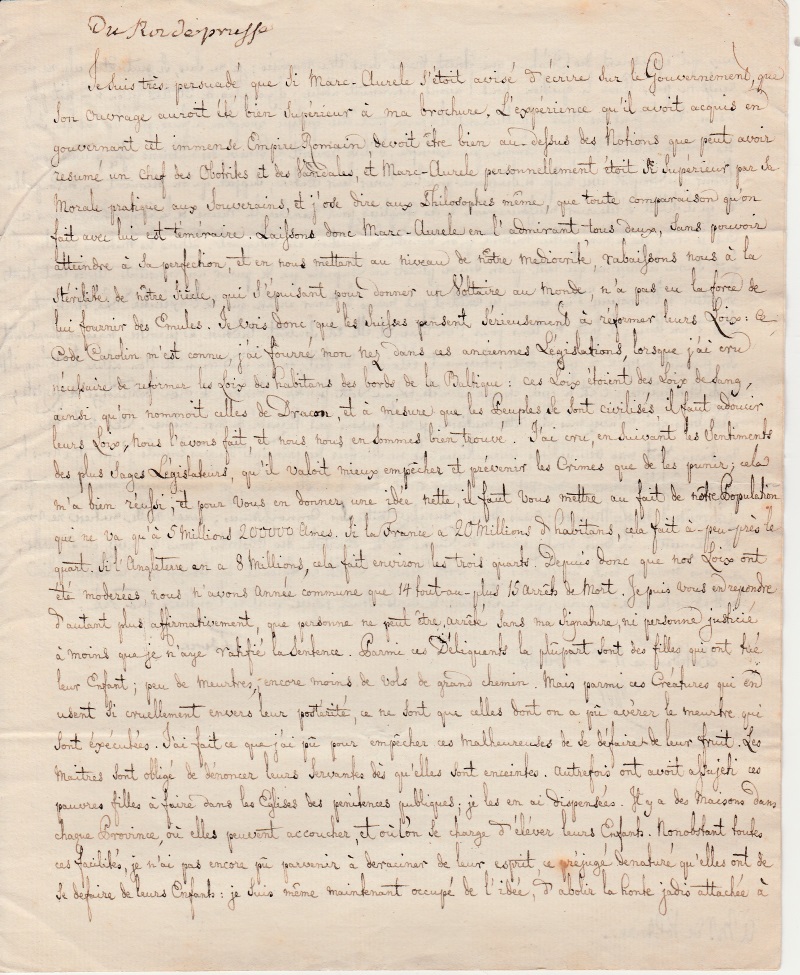 Du Roi de prusse
Je suis très persuadé que si Marc-Aurele s'étoit avisé d'écrire sur le Gouvernement, que
son ouvrage auroit été bien supérieur à ma brochure. L'expérience qu'il avoit acquis en
gouvernant cet immense Empire Romain devoit être bien au-dessus des Notions que peut avoir
resumé un chef des Obotrites et des Vandales, et Marc-Aurele personnellement étoit si supérieur par sa
Morale pratique aux Souverains, et j'ose dire aux Philosophes même, que toute comparaison qu'on
fait avec lui est téméraire. Laissons donc Marc-Aurele en l'admirant tous deux, sans pouvoir
atteindre à sa perfection, et en nous mettant au niveau de nôtre mediocrité, rabaissons nous à la
stérilité de nôtre siècle, qui s'épuisant pour donner un Voltaire au Monde, n'a pas eu la force de
lui fournir des Emules. Je vois donc que les suisses pensent sérieusement à réformer leurs Loix: Ce
Code Carolin m'est connu, j'ai fourré mon nez dans ces anciennes Législations, lorsque j'ai cru
nécessaire de reformer les Loix des habitans des bords de la Baltique: ces Loix étoient des Loix de sang,
ainsi qu'on nommoit celles de Dracon, et à mésure que les Peuples se sont civilisés il faut adoucir
leurs Loix, nous l'avons fait, et nous nous en sommes bien trouvé. J'ai cru, en suivant les sentiments
des plus sages Législateurs, qu'il valoit mieux empêcher et prévenir les Crimes que de les punir; cela
m'a bien réussi, et pour vous en donner une idée nette, il faut vous mettre au fait de nôtre Population
que ne va qu'à 5 Millions 200000 Ames. Si la France a 20 Millions d'habitans, cela fait à-peu-près le
quart. Si l'Angleterre en a 8 Millions, cela fait environ les trois quarts. Depuis donc que nos Loix ont
été moderées nous n'avons Année commune que 14 tout-au-plus 15 Arrêts de Mort. Je puis vous en repondre
d'autant plus affirmativement, que personne ne peut être arrêté sans ma signature, ni personne justicié
à moins que je n'aye ratifié la sentence. Parmi ces Déliquents la plûpart sont des filles qui ont tué
leur Enfant; peu de meurtres, encore moins de vols de grand chemin. Mais parmi ces Créatures qui en
usent si cruellement envers leur postérité, ce ne sont que celles dont on a pû avérer le meurtre qui
sont éxécutées. J'ai fait ce que j'ai pû pour empêcher ces malheureuses de se défaire de leur fruit. Les
Maitres sont obligé de dénoncer leurs servantes dès qu'elles sont enceintes. Autrefois ont avoit assujeti ces
pauvres filles à faire dans les Eglises des pénitences publiques; je les en ai dispensées. Il y a des Maisons dans
chaque Province, où elles peuvent accoucher, et où l'on se charge d'éléver leurs Enfants. Nonobstant toutes
ces facilités, je n'ai pas encore pû parvenir à deraciner de leur esprit, ce préjugé denaturé qu'elles ont de
se défaire de leurs Enfants: je suis même maintenant occupé de l'idée, d'abolir la honte jadis attachée à